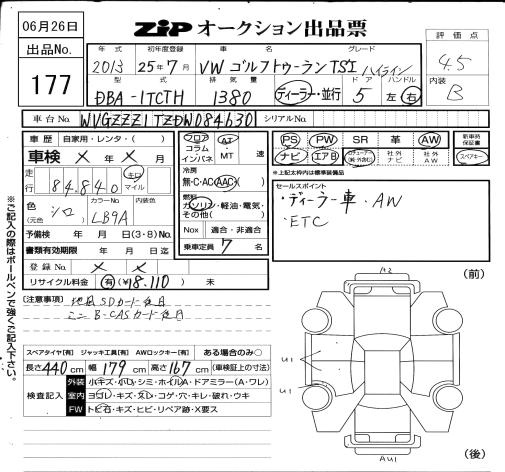 06月26日
ZIP オークション出品票
出品No.
177
評価点
4.5
内装
B
年式 初年度登録 車名 グレード
2013 25年7月 VW ゴルフトゥーラン TSI ハイライン
型式 排気量 ドア ハンドル
DBA-1TCTH 1380 ディーラー・並行 5 左 右
車台No. WVGZZZ1TZDW084630 シリアルNo.
車歴 自家用・レンタ・( )
車検 × 年 × 月
走行 84,840 キロ マイル
色 (元色) シロ カラーNo. LB9A 内装色
予備検 年 月 日(3・8)No.
書類有効期限 年 月 日迄
登録No. × ×
リサイクル料金 有 (¥18,110) 未
フロア コラム インパネ AT MT 速
冷房 無・C・AC AAC
燃料 ガソリン・軽油・電気・その他( )
Nox 適合・非適合
乗車定員 7 名
PS PW SR 革 AW
ナビ エアB 社外ナビ 社外AW
新車時保証書
スペアキー
※上記太枠内は標準装備品
セールスポイント
・ディーラー車・AW
・ETC
(注意事項) 地図SDカード後日
ミニB-CASカード後日
スペアタイヤ[有] ジャッキ工具[有] AWロックキー[有] ある場合のみ○
長さ440cm 幅179cm 高さ167cm (車検証上の寸法)
検査記入
外装 小キズ・小凹・シミ・ホイルA・ドアミラー(A・ワレ)
室内 ヨゴレ・キズ・スレ・コゲ・穴・キレ・破れ・ウキ
FW トビ石・キズ・ヒビ・リペア跡・X要ス
※ご記入の際はボールペンで強くご記入下さい。
(前)
A2
U1
U1
AU1
(後)